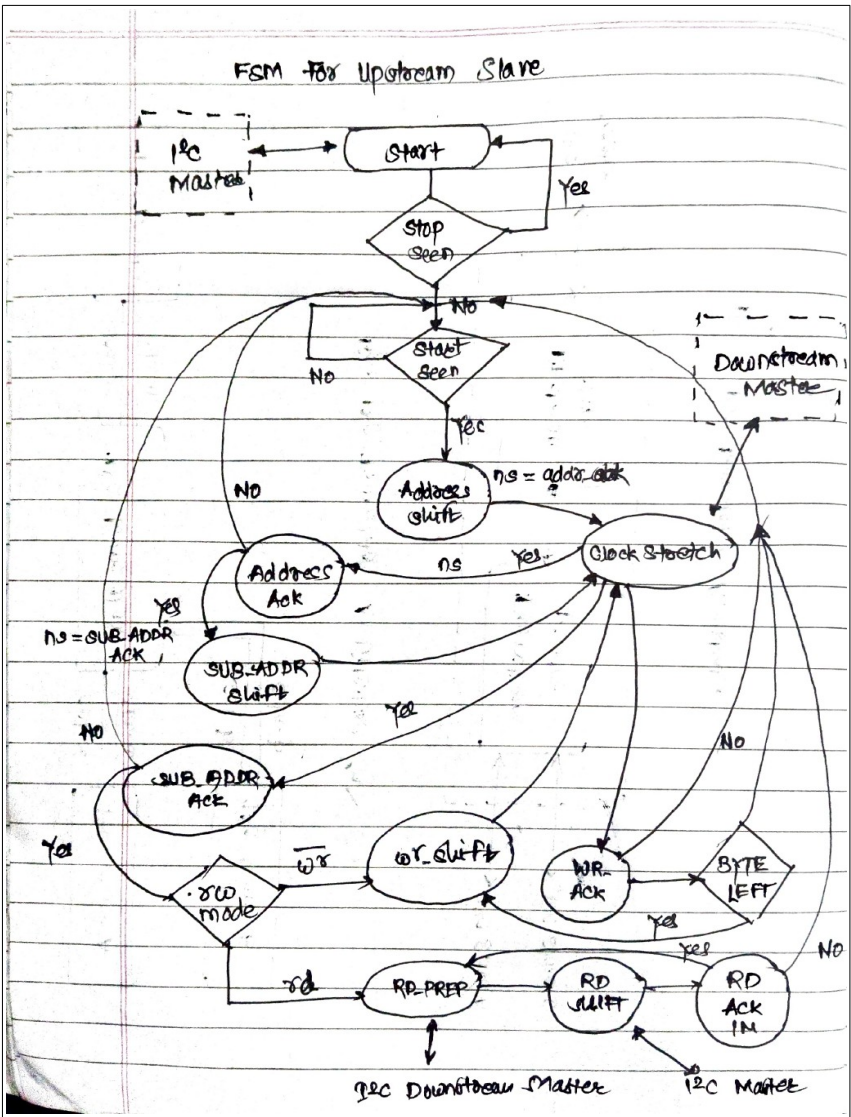 FSM For Upstream Slave
I²C
Master
Start
Yes
Stop
Seen
No
Start
Seen
No
Downstream
Master
Yes
Address
Shift
ns = addr_ack
Clock Stretch
NO
Yes
ns
Address
Ack
Yes
ns = SUB_ADDR
ACK
SUB_ADDR
Shift
Yes
No
No
SUB_ADDR
ACK
Yes
rw
mode
wr
wr_shift
WR_
ACK
BYTE
LEFT
Yes
Yes
No
rd
RD_PREP
RD
SHIFT
RD
ACK
IN
I²C Downstream Master
I²C Master